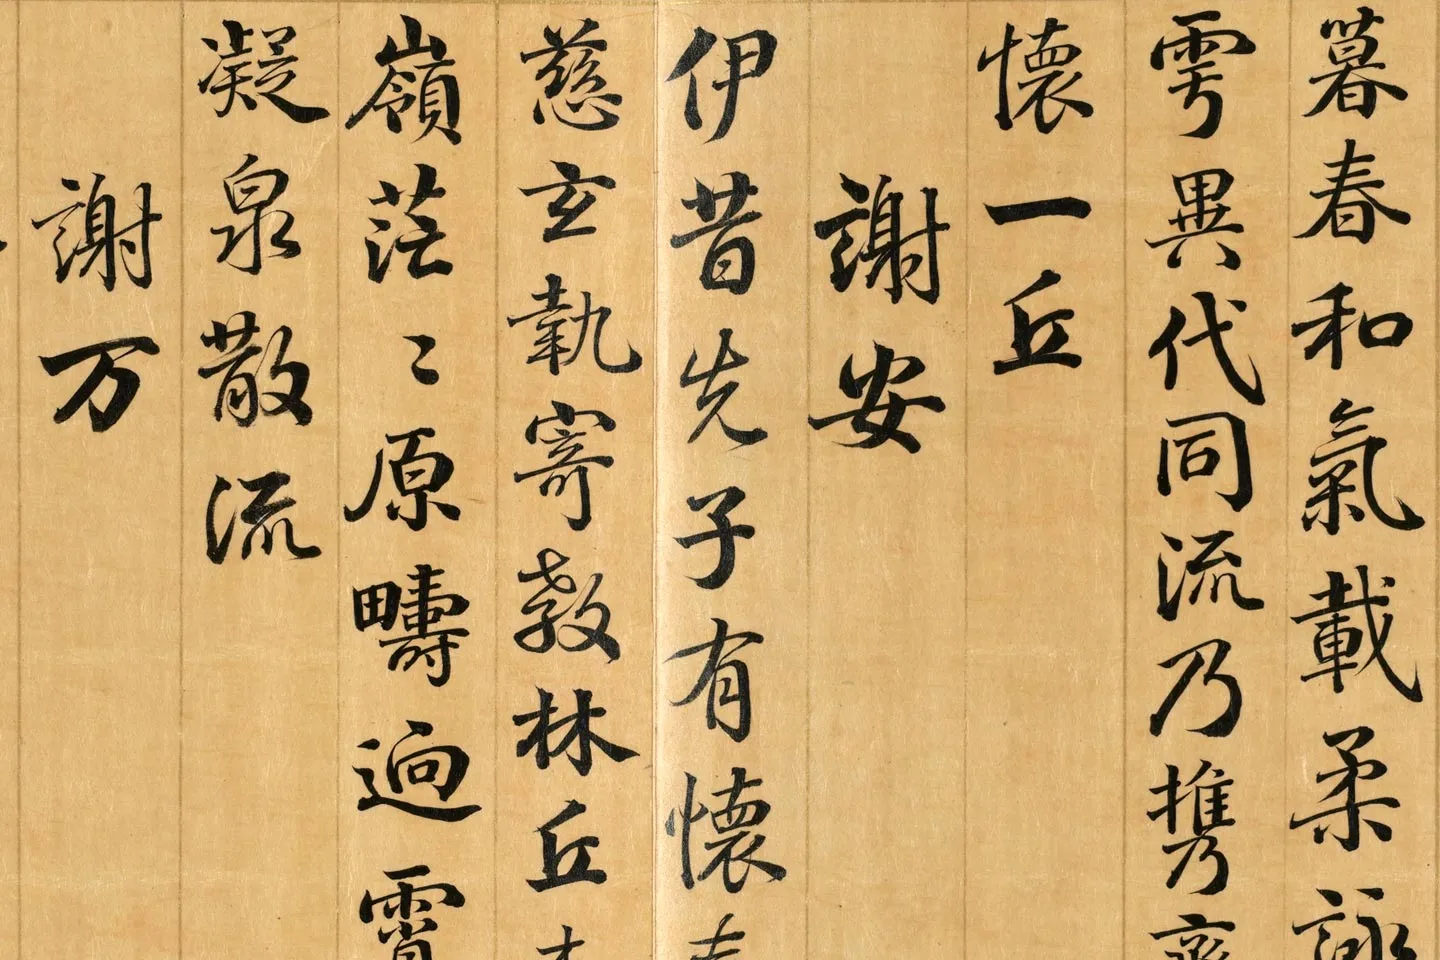 暮春和氣載柔詠
雩異代同流乃携齊
懷一丘
謝安
伊昔先子有懷春
慈玄執寄敖林丘
嶺茫〻原疇迥霄
凝泉散流
謝万